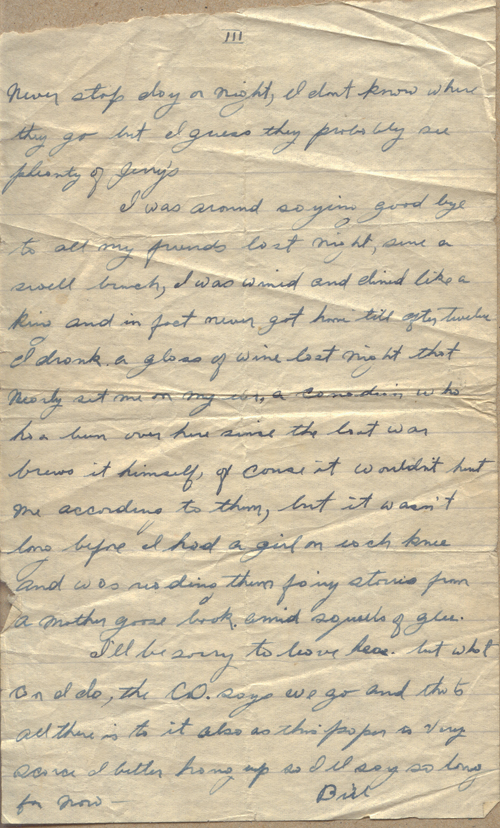 III
Never stop day or night, I dont know where
they go but I guess they probably see
plenty of Jerry's
I was around saying good bye
to all my friends last night, sure a
swell bunch, I was wined and dined like a
king and in fact never got home till after twelve
I drank a glass of wine last night that
nearly set me on my ear, a Canadian who
has been over here since the last war
brews it himself, of course it wouldn't hurt
me according to them, but it wasn't
long before I had a girl on each knee
and was reading them fairy stories from
a mother goose book, amid squeels of glee.
I'll be sorry to leave here. but what
can I do, the C.O. says we go and that's
all there is to it also as this paper is very
scarce I better hang up so I'll say so long
for now —
Bill